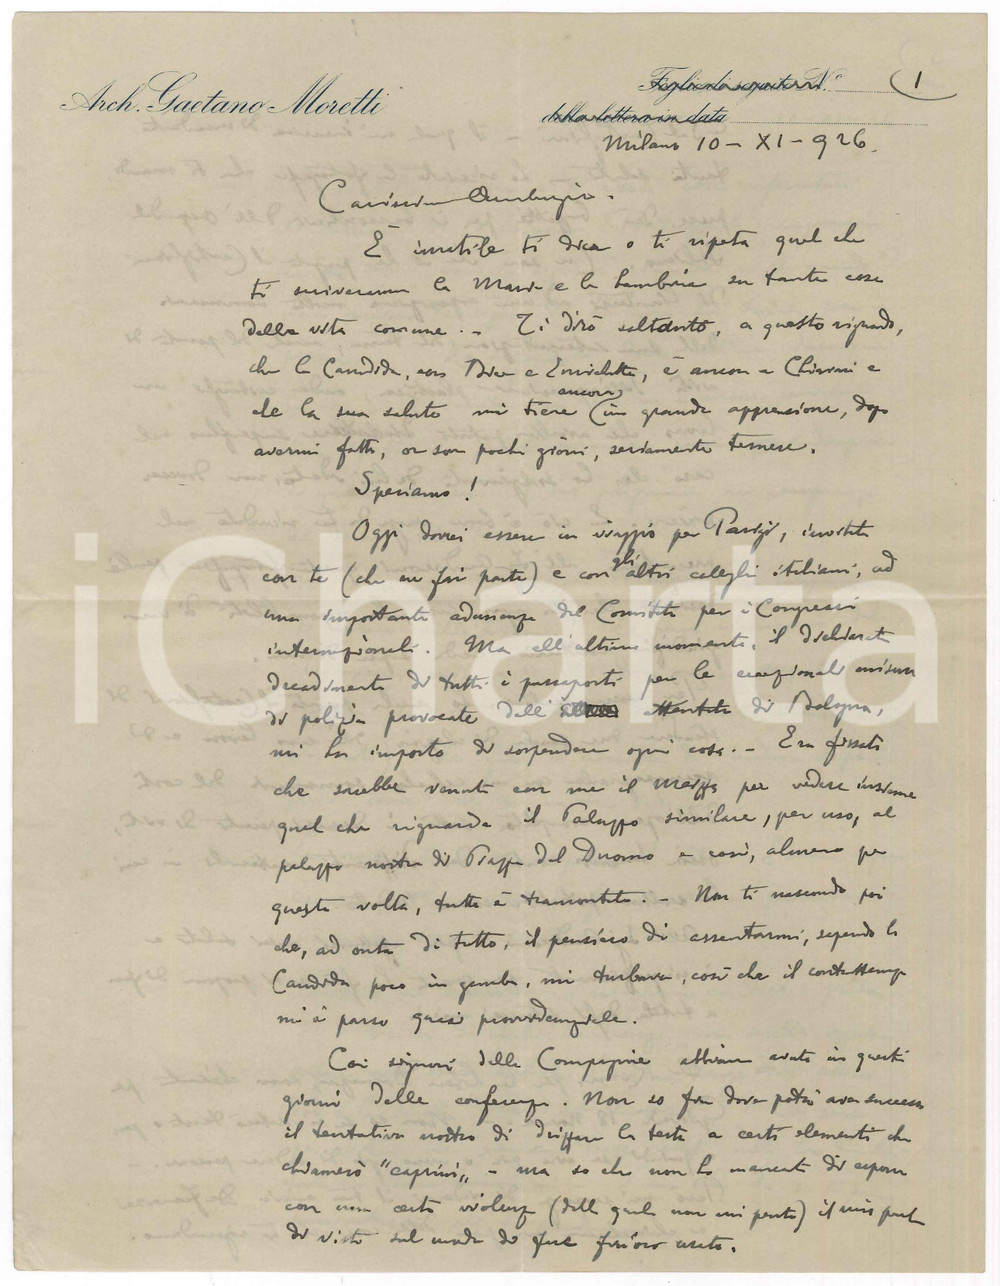 Arch. Gaetano Moretti
Foglio di seguito N.° 1
della lettera in data
Milano 10 - XI - 926.
Carissimo Ambrogio.
È inutile ti dica o ti ripeta quel che
ti scriveranno la Maria e la bambina su tante cose
della vita comune. - Ti dirò soltanto, a questo riguardo,
che la Candida, con Bice e Enrichetta, è ancora a Chiavari e
che la sua salute mi tiene ancora in grande apprensione, dopo
avermi fatto, or son pochi giorni, seriamente temere.
Speriamo!
Oggi dovrei essere in viaggio per Parigi, invitato
con te (che ne fai parte) e con gli altri colleghi italiani, ad
una importante adunanza del Comitato per i Congressi
internazionali. Ma all'ultimo momento, il dichiarato
decadimento di tutti i passaporti per le eccezionali misure
di polizia provocate dall' attentato di Bologna,
mi ha imposto di sospendere ogni cosa. - Era fissato
che sarebbe venuto con me il per vedere insieme
quel che riguarda il Palazzo similare, per uso, al
palazzo nostro di Piazza del Duomo e così, almeno per
questa volta, tutto è tramontato. - Non ti nascondo poi
che, ad onta di tutto, il pensiero di assentarmi, sapendo la
Candida poco in gamba, mi turbava, così che il contrattempo
mi è parso quasi provvidenziale.
Coi signori della Compagnia abbiamo avuto in questi
giorni delle conferenze. Non so fin dove potrà aver successo
il tentativo nostro di drizzare la testa a certi elementi che
chiamerò "caprini" - ma so che non ho mancato di esporre
con una certa violenza (della quale non mi pento) il mio punto
di vista sul modo da fin